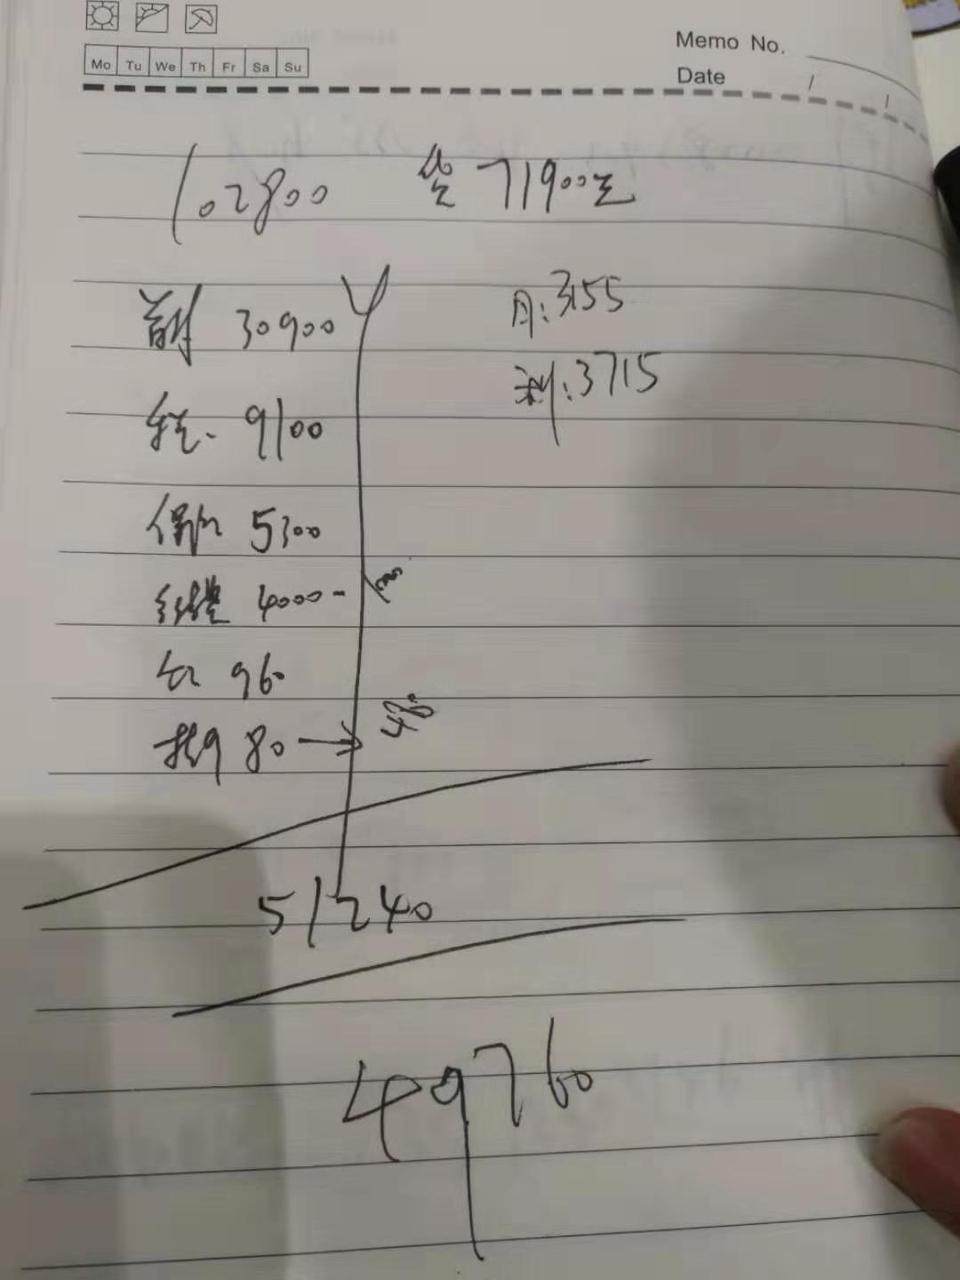 Memo No.
Mo Tu We Th Fr Sa Su
Date / /
102800 贷 71900元
首付 30900
月:3155
利:3715
税 9100
保险 5300
4000-
960
80 → 480
51240
49760